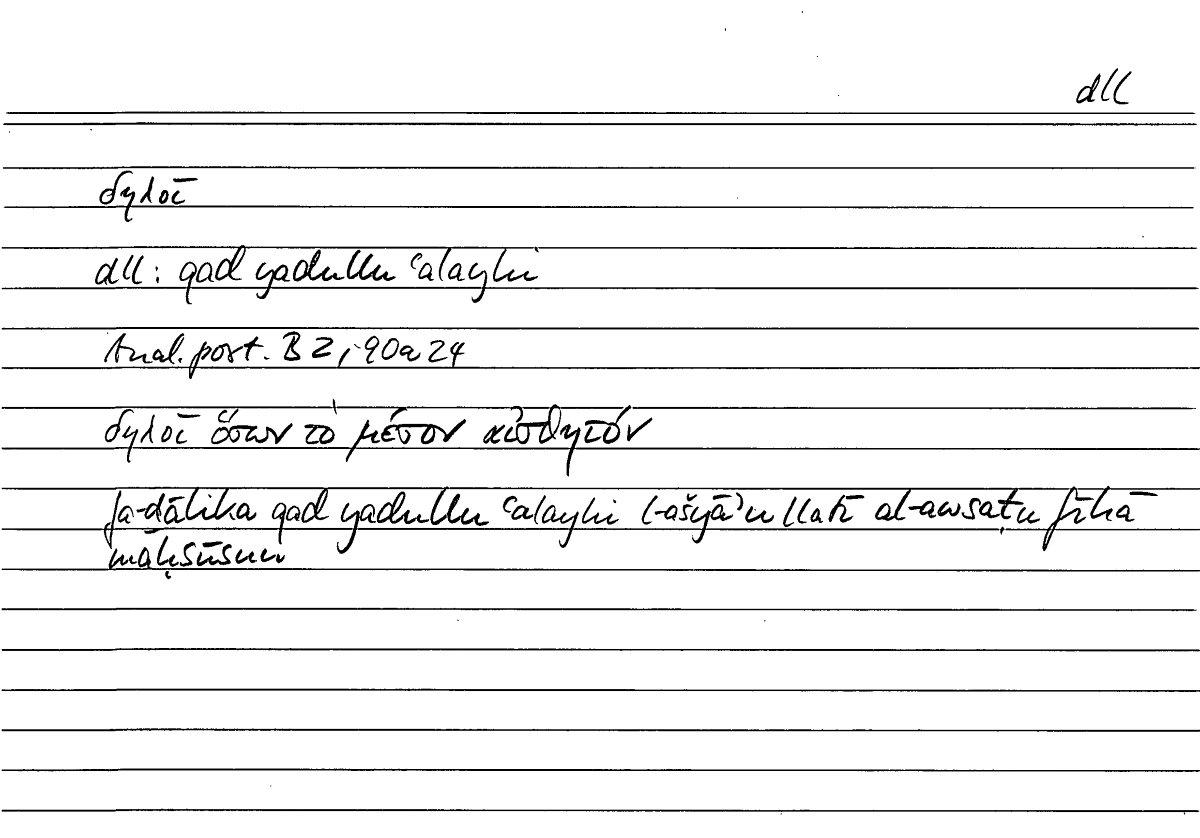 dll
δηλοῖ
dll: qad yadullu ʿalayhi
Anal. post. B 2, 90a24
δηλοῖ ὅσων τὸ μέσον αἰσθητόν
fa-ḏālika qad yadullu ʿalayhi l-ašyāʾu llatī al-awsaṭu fīhā
māḥsūsun